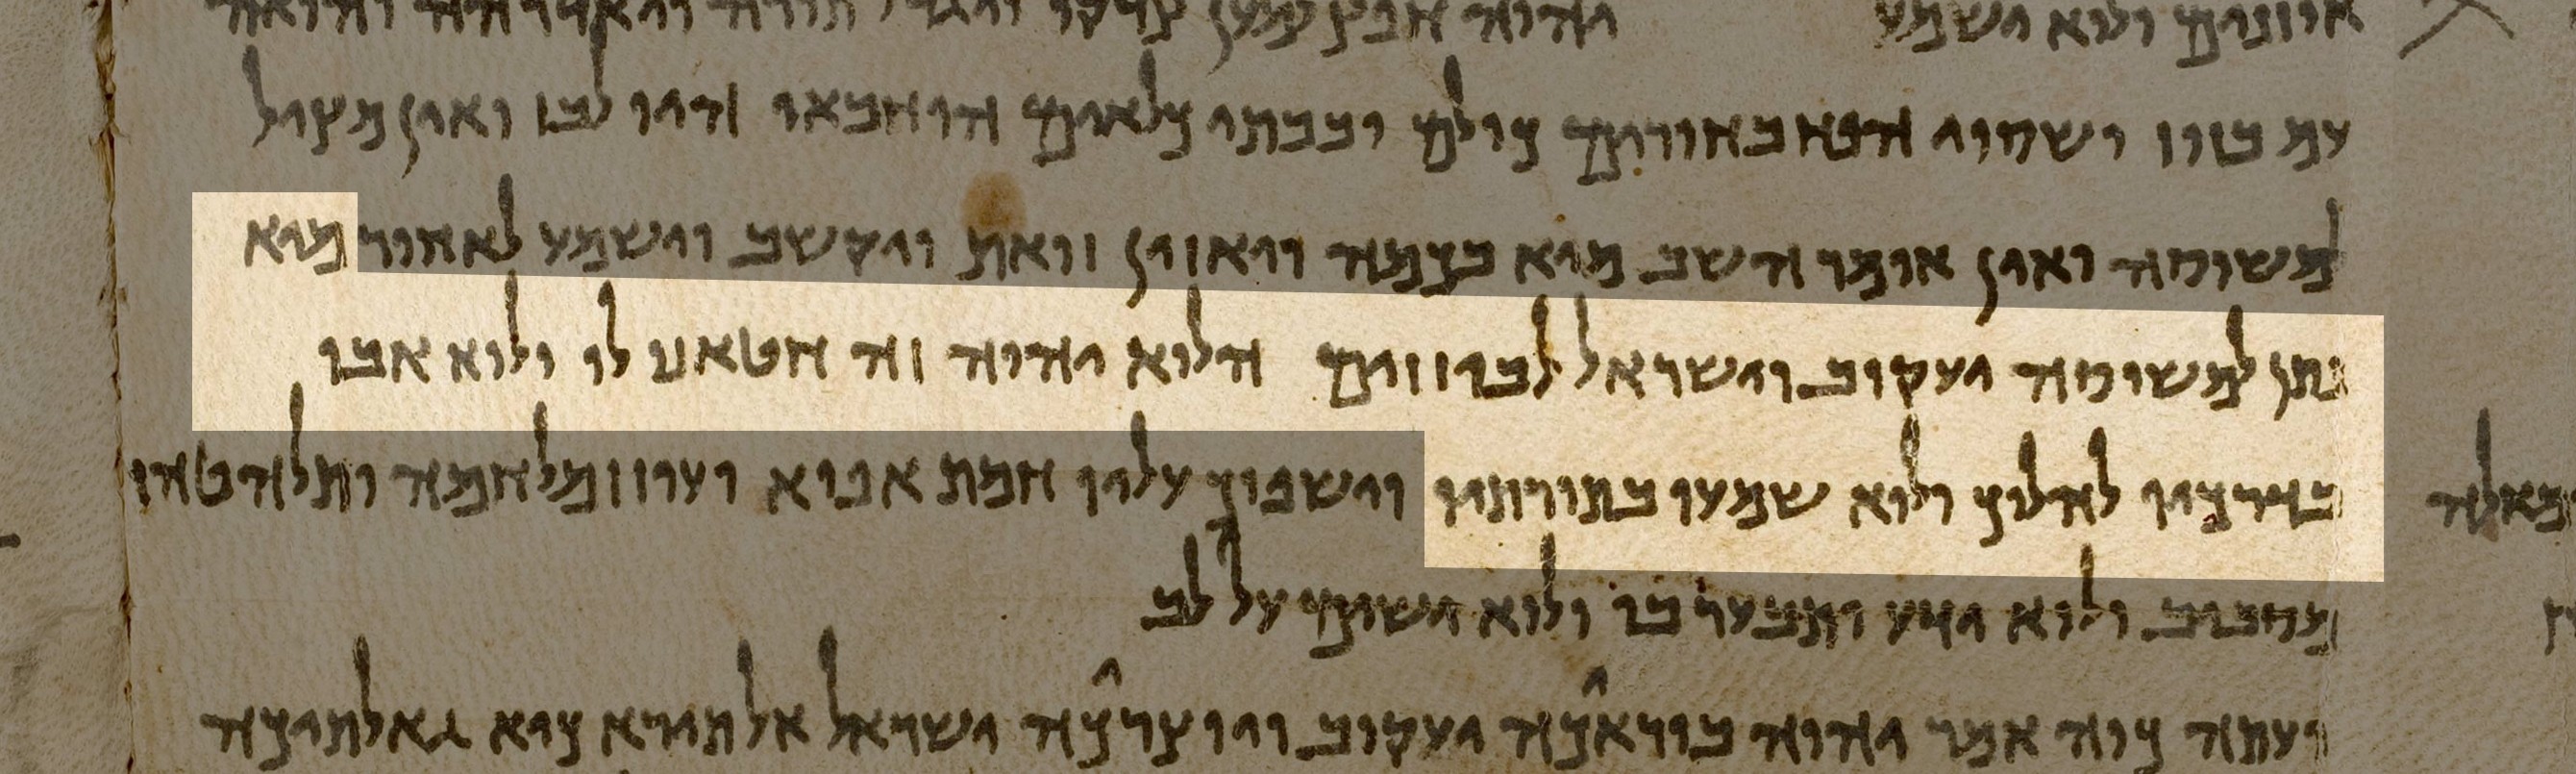 אוזנים ולוא ישמע יהוה חפץ למען צדקו ויגדל תורה ויאדרהה והואה
עם בזוז ושסוי הפח בחורים כולם ובבתי כלאים הוחבאו והיו לבז ואין מציל
למשוסה ואין אומר השב מיא בכמה ויאזין וזאת ויקשב וישמע לאחור מיא
נתן למשוסה יעקוב וישראל לבוזזים הלוא יהוה זה חטאנו לו ולוא אבו
בדרכיו להלוך ולוא שמעו בתורתיו וישפוך עליו חמת אפוא ועזוז מלחמה ותלהטהו
מסביב ולוא ידע ותבער בו ולוא ישים על לב
ועתה כוה אמר יהוה בוראכה יעקוב ויוצרכה ישראל אל תירא כיא גאלתיכה